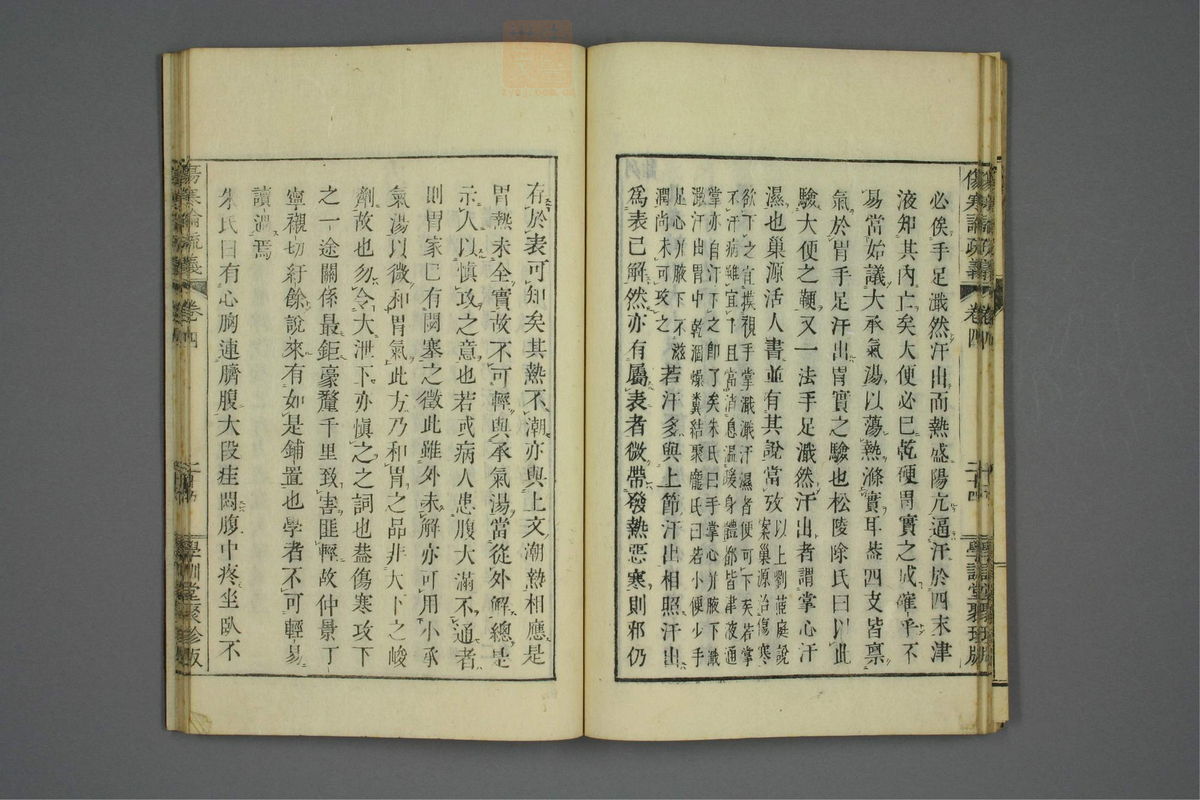 必俟手足濈然汗出而熱盛陽亢逼汗於四末津
液知其内亡矣大便必已乾硬胃實之成確乎不
易當始議大承氣湯以蕩熱滌實耳葢四支皆禀
氣於胃手足汗出胃實之驗也松陵徐氏曰以此
驗大便之鞕又一法手足濈然汗出者謂掌心汗
濕也巢源活人書並有其說當攷以上劉蒞庭說
案巢源治傷寒
欲下之宜摸視手掌濈濈汗濕者便可下矣若掌
不汗病雖宜下且當消息温暖身體都皆津液通
掌亦自汗下之即了矣朱氏曰手掌心并腋下濈
濈汗出胃中乾涸燥糞結聚龐氏曰若小便少手
足心并腋下不滋
潤尚未可攻之若汗多與上節汗出相照汗出
爲表已解然亦有屬表者微帶發熱惡寒則邪仍
傷寒論疏義 卷四 二十四 學訓堂聚珍版
存於表可知矣其熱不潮亦與上文潮熱相應是
胃熱未全實故不可輕與承氣湯當從外解總是
示人以慎攻之意也若或病人患腹大滿不通者
則胃家已有閉塞之徵此雖外未解亦可用小承
氣湯以微和胃氣此方乃和胃之品非大下之峻
劑故也勿令大泄下亦慎之之詞也葢傷寒攻下
之一途關係最鉅豪釐千里致害匪輕故仲景丁
寧襯切紆餘說來有如是鋪置也學者不可輕易
讀過焉
朱氏曰有心胸連臍腹大段痞悶腹中疼坐臥不
傷寒論疏義 卷四 二十四 學訓堂聚珍版